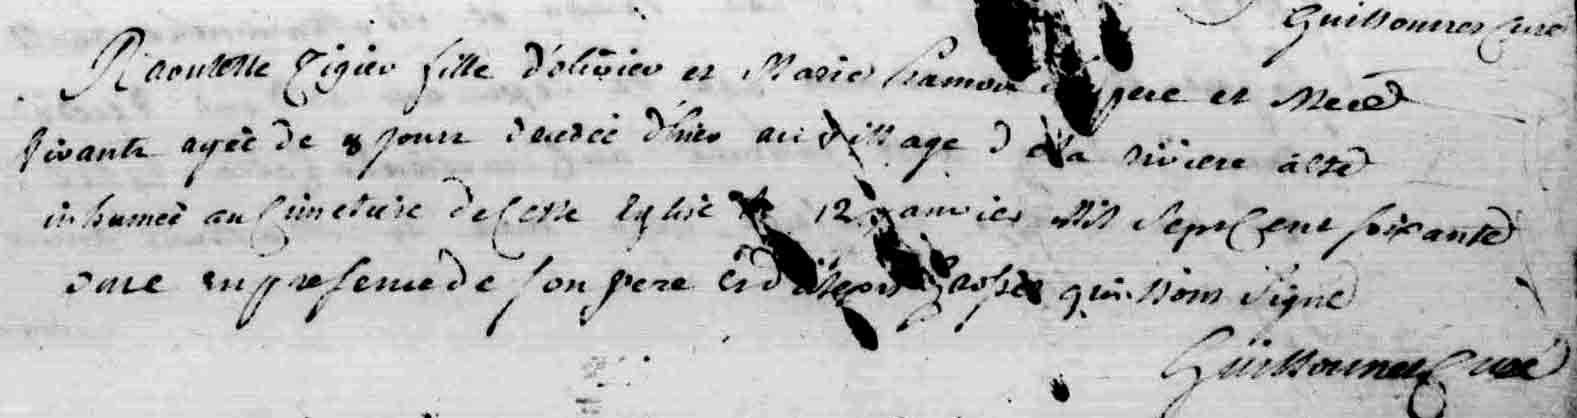 Guissonnes Curé
Raoulette Tigier fille d'olivier et Marie hamon pere et Mere
vivants ageé de 8 jours decedeé d'hier au village de la riviere a esté
inhumeé au Cimetiere de Cette Eglise le 12 janvier Mil Sept Cent soixante
onze en presence de son pere et d' qui nont Signé
Guissonnes Curé